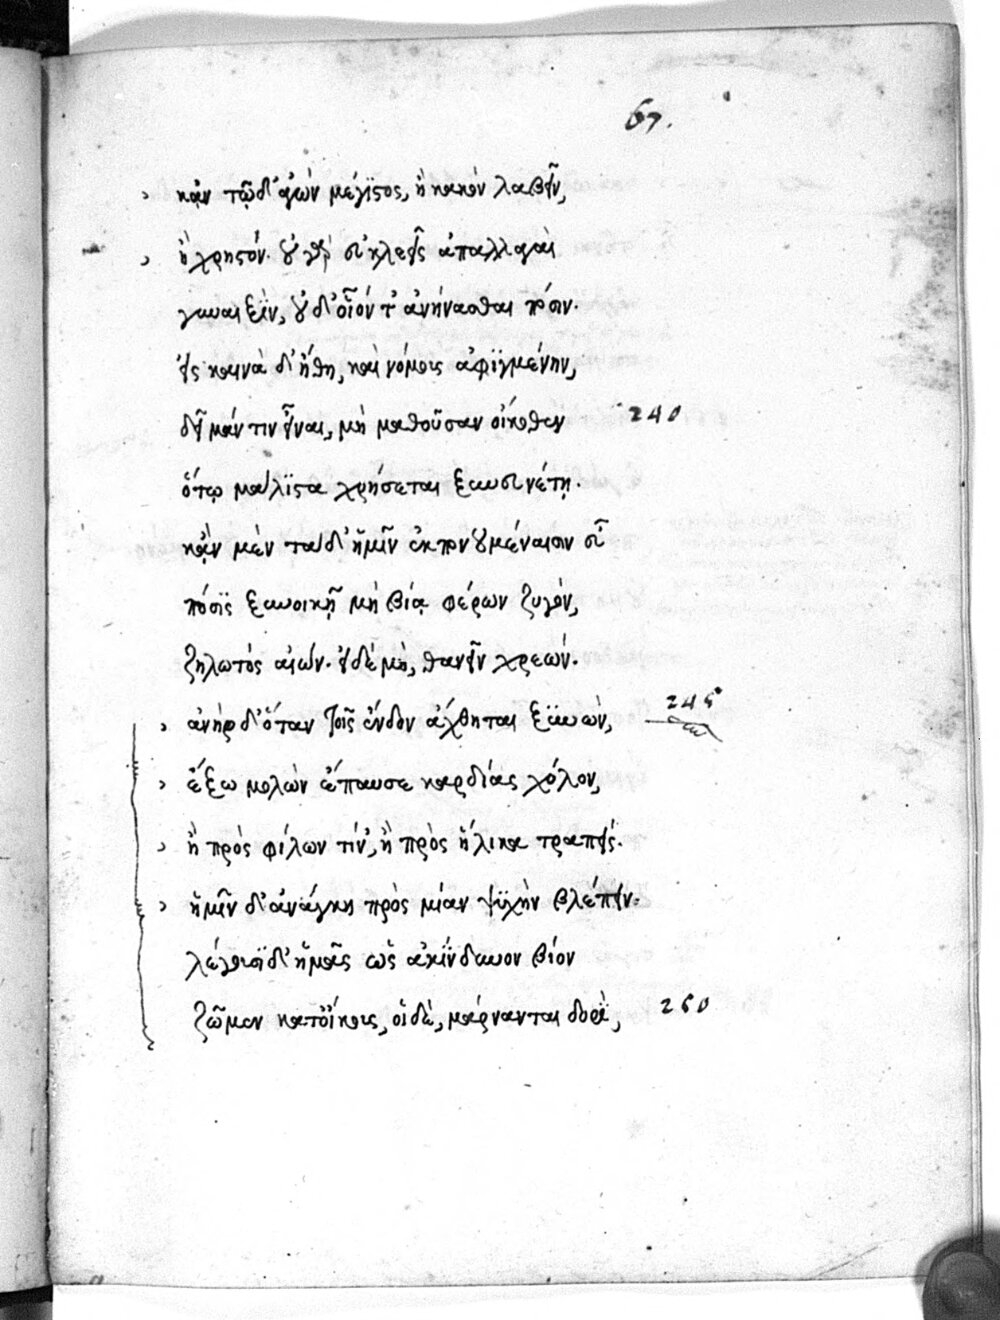 67.
κἀν τῷδ' ἀγὼν μέγιστος, ἢ κακὸν λαβεῖν,
ἢ χρηστόν. οὐ γὰρ εὐκλεεῖς ἀπαλλαγαὶ
γυναιξὶν, οὐδ' οἷόν τ' ἀνήνασθαι πόσιν.
εἰς καινὰ δ' ἤθη, καὶ νόμους ἀφιγμένην,
δεῖ μάντιν εἶναι, μὴ μαθοῦσαν οἴκοθεν 240
ὅτῳ μάλιστα χρήσεται ξυνευνέτῃ.
κἂν μὲν τάδ' ἡμῖν ἐκπονουμέναισιν εὖ
πόσις ξυνοικῇ μὴ βίᾳ φέρων ζυγὸν,
ζηλωτὸς αἰών. εἰ δὲ μὴ, θανεῖν χρεών.
ἀνὴρ δ' ὅταν τοῖς ἔνδον ἄχθηται ξυνὼν, 245
ἔξω μολὼν ἔπαυσε καρδίας χόλον,
ἢ πρὸς φίλων τίν', ἢ πρὸς ἥλικα τραπείς.
ἡμῖν δ' ἀνάγκη πρὸς μίαν ψυχὴν βλέπειν.
λέγουσι δ' ἡμᾶς ὡς ἀκίνδυνον βίον
ζῶμεν κατ' οἴκους, οἱ δὲ, μάρνανται δορὶ, 250